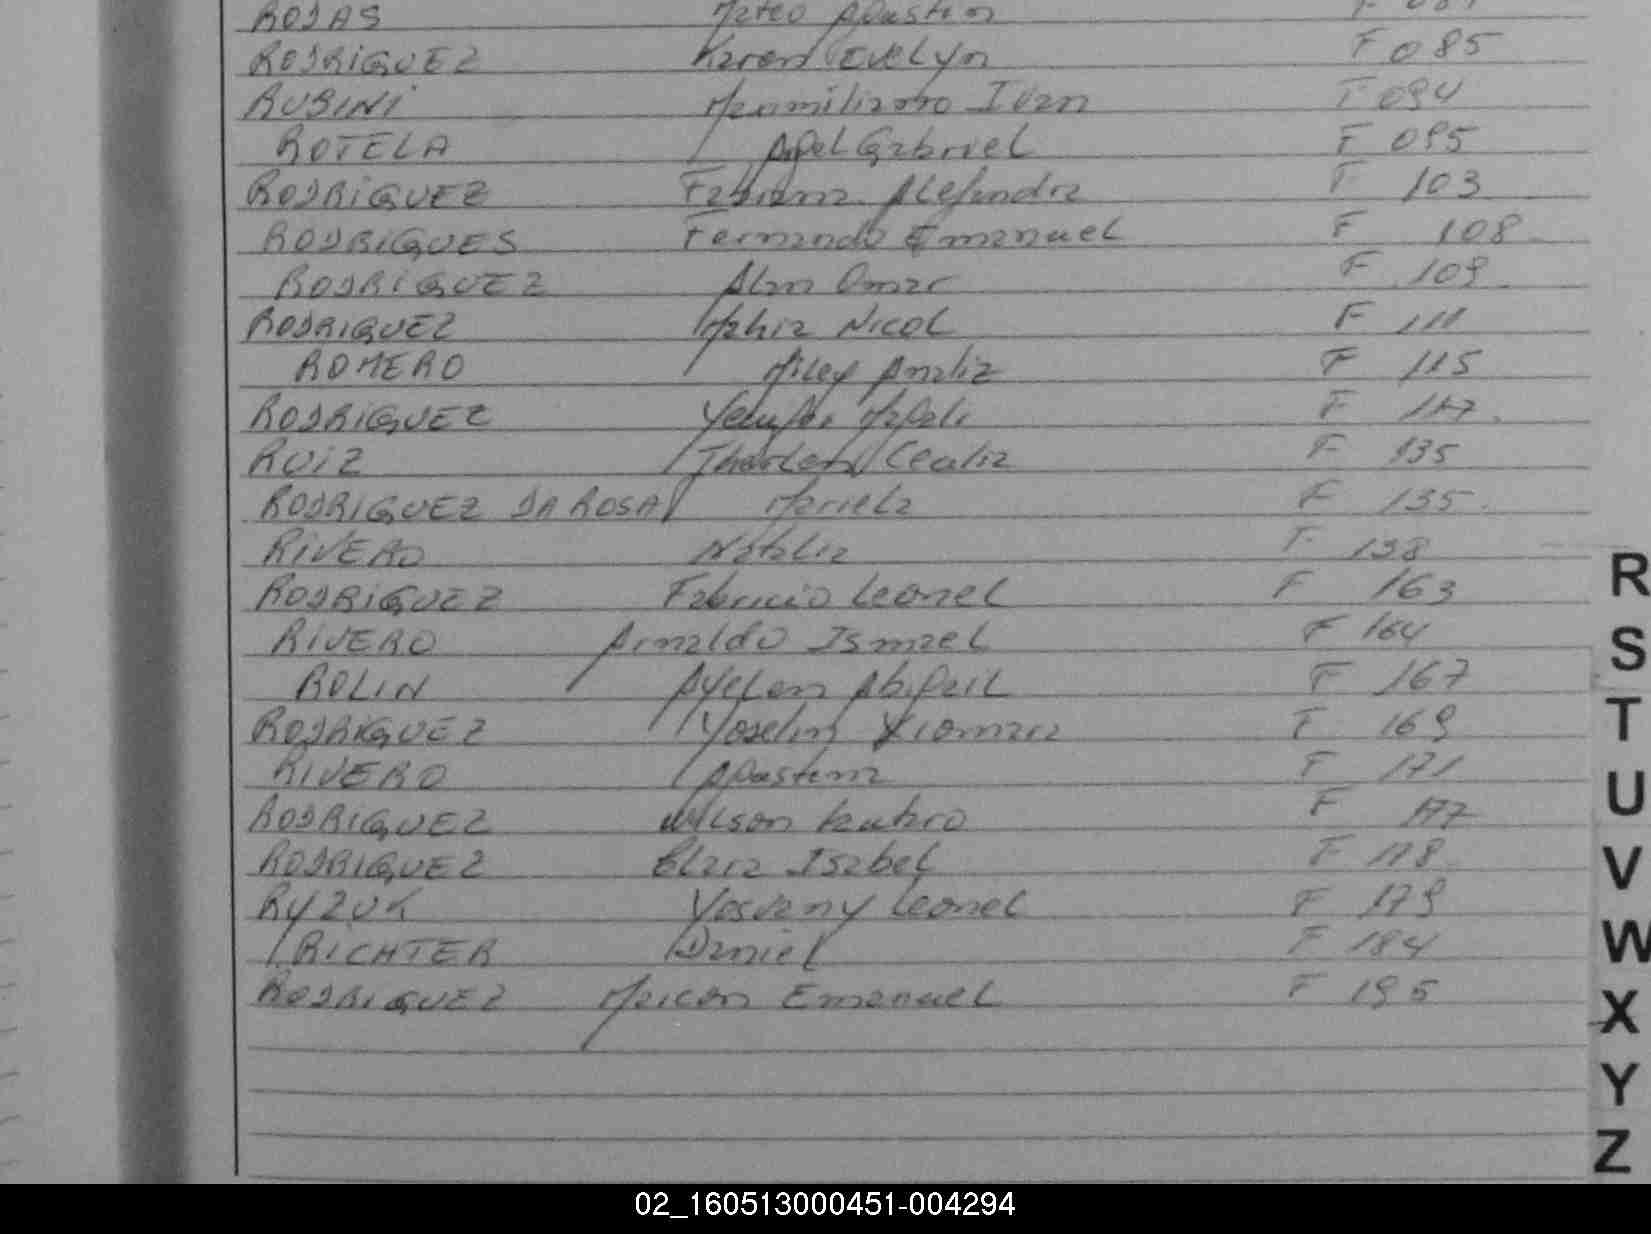 ROJAS Mateo Agustin F 081
RODRIGUEZ Karen Evelyn F 085
RUBINI Maximiliano Ivan F 094
ROTELA Angel Gabriel F 095
RODRIGUEZ Fabiana Alejandra F 103
RODRIGUES Fernando Emanuel F 108
RODRIGUEZ Alan Omar F 109
RODRIGUEZ Mahia NICOL F 111
ROMERO Miley Analia F 115
RODRIGUEZ Yenifer Magali F 117
RUIZ F 135
RODRIGUEZ DA ROSA Mariela F 135
RIVERO Natalia F 138
RODRIGUEZ Fabricio Leonel F 163
RIVERO Arnaldo Ismael F 164
ROLIN Ayelen Abigail F 167
RODRIGUEZ Yoselin Xiomara F 169
RIVERO Agustina F 171
RODRIGUEZ Wilson Lautaro F 177
RODRIGUEZ Elara Isabel F 178
RYZUK Yosvany Leonel F 179
RICHTER Daniel F 184
RODRIGUEZ Maicon Emanuel F 195
R
S
T
U
V
W
X
Y
Z
02_160513000451-004294